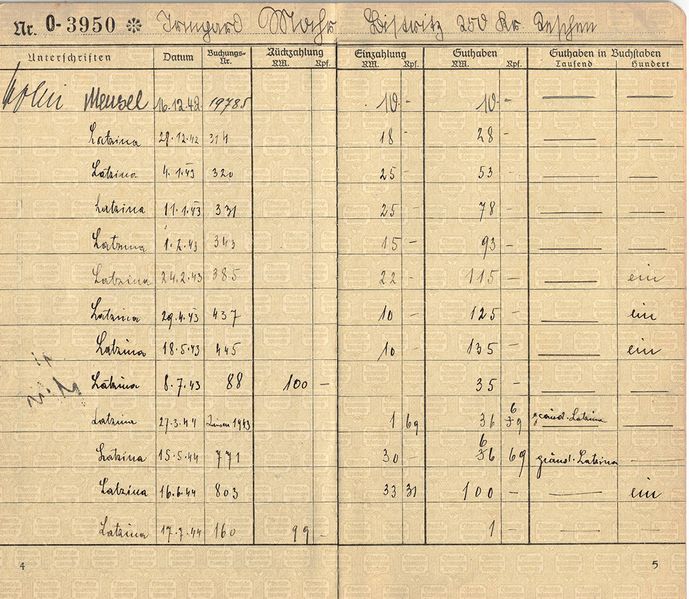 Nr. O-3950 ✻ Irmgard Mohr Bistritz 250 Kr. Teschen
Unterschriften Datum Buchungs-Nr. Rückzahlung RM. Rpf. Einzahlung RM. Rpf. Guthaben RM. Rpf. Guthaben in Buchstaben Tausend Hundert
Mensel 16.12.42 19785 10 - 10 - —
Latzina 29.12.42 314 18 - 28 - — —
Latzina 4.1.43 320 25 - 53 - — —
Latzina 11.1.43 331 25 - 78 - — —
Latzina 1.2.43 343 15 - 93 - — —
Latzina 24.2.43 385 22 - 115 - — ein
Latzina 29.4.43 437 10 - 125 - — ein
Latzina 18.5.43 445 10 - 135 - — ein
Latzina 8.7.43 88 100 - 35 - — —
Latzina 27.3.44 Zinsen 1943 1 69 36 69 geänd. Latzina
Latzina 15.5.44 771 30 - 66 69 geänd. Latzina -
Latzina 16.6.44 803 33 31 100 - — ein
Latzina 17.7.44 160 99 - 1 - — —
4 5